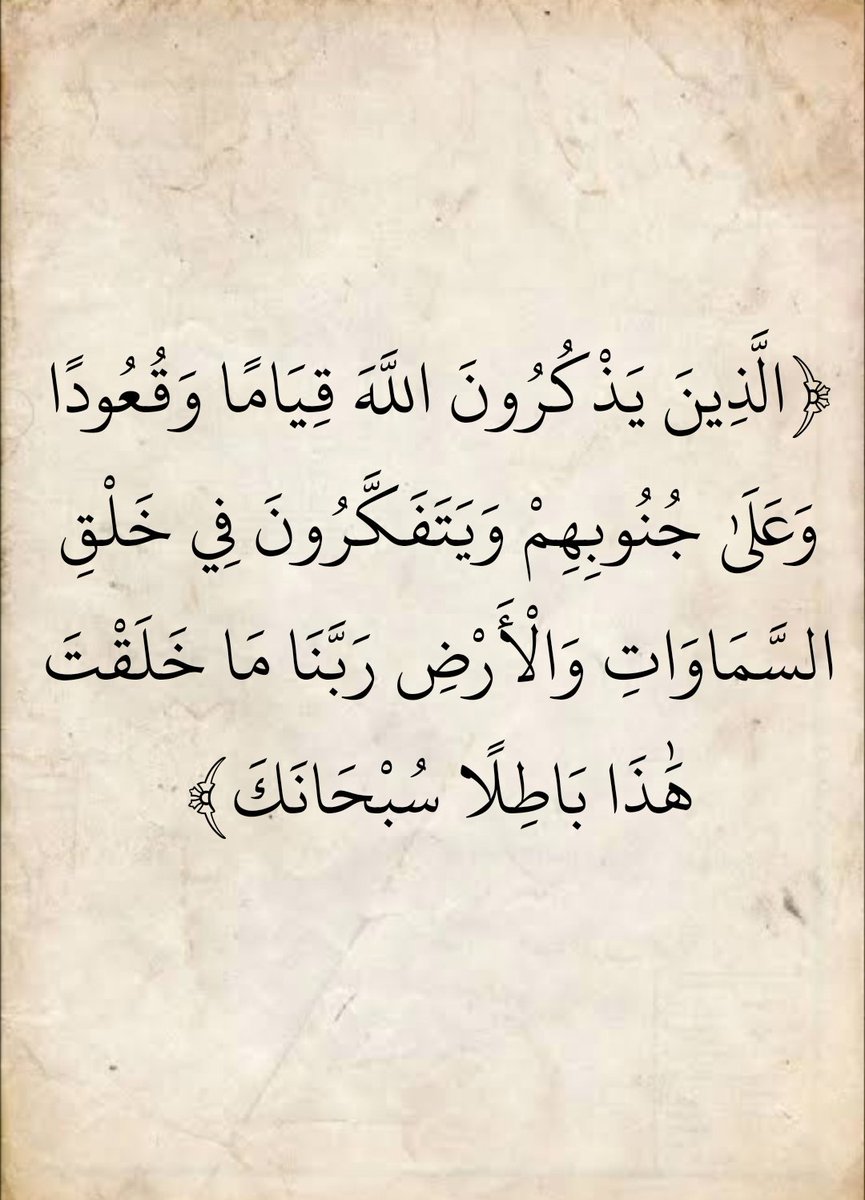 ﴿الَّذِينَ يَذْكُرُونَ اللَّهَ قِيَامًا وَقُعُودًا
وَعَلَىٰ جُنُوبِهِمْ وَيَتَفَكَّرُونَ فِي خَلْقِ
السَّمَاوَاتِ وَالْأَرْضِ رَبَّنَا مَا خَلَقْتَ
هَٰذَا بَاطِلًا سُبْحَانَكَ﴾